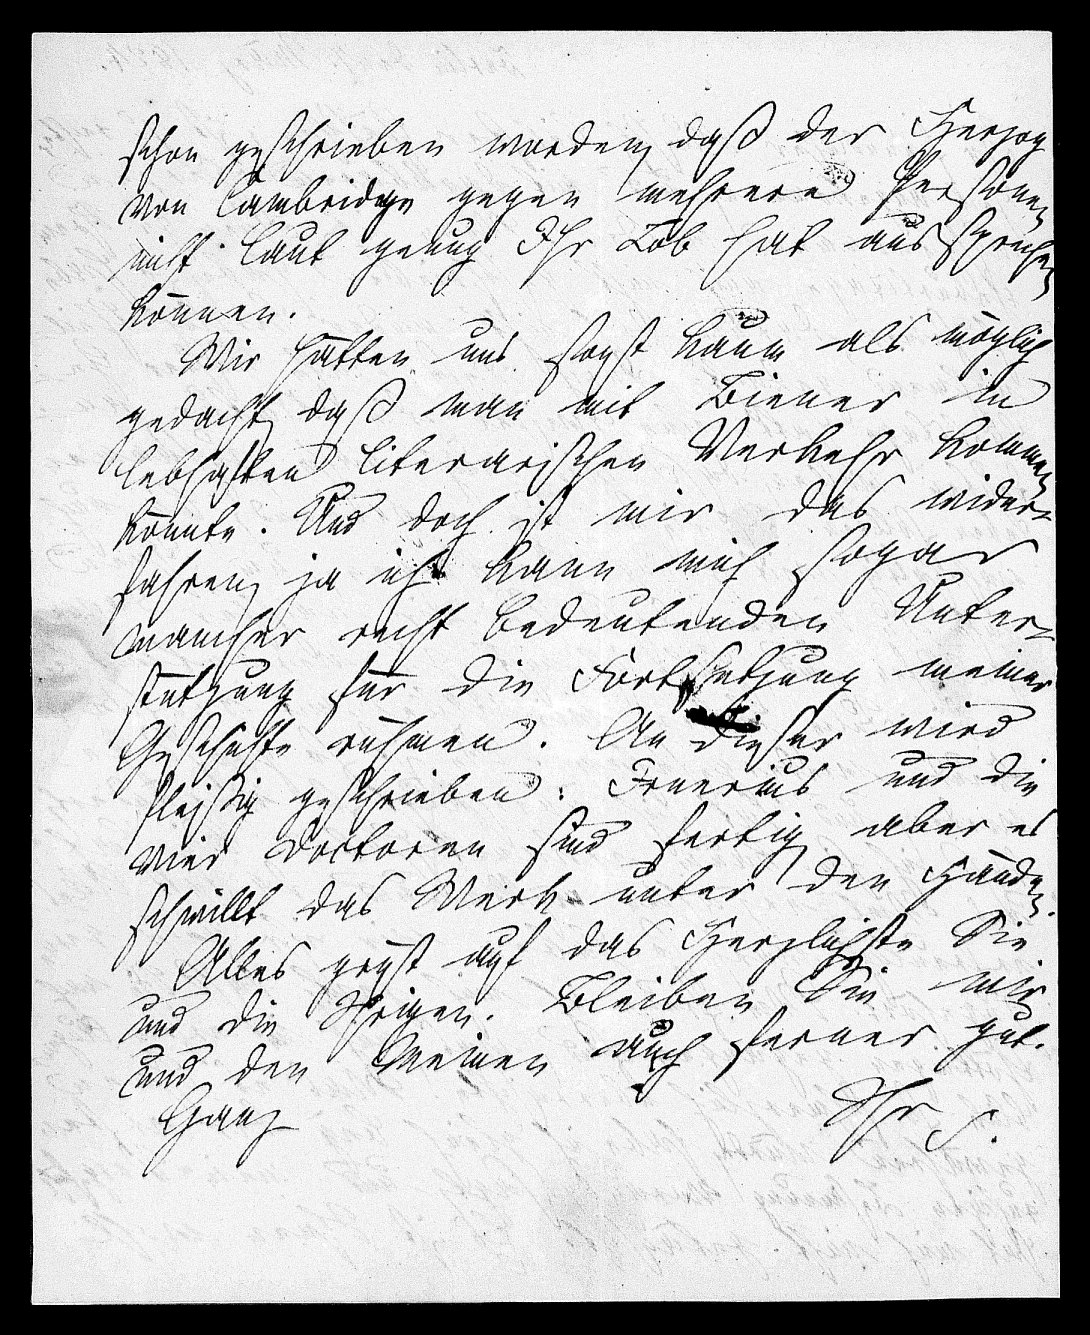 schon geschrieben worden, daß der Herzog
von Cambridge gegen mehrere Personen
nicht laut genug Ihr Lob hat aussprechen
können.
Wir hätten uns sonst kaum als möglich
gedacht, daß man mit Biener in
lebhaften literarischen Verkehr kommen
könnte. Und doch ist mir das wider-
fahren, ja ich kann mich sogar
mancher recht bedeutenden Unter-
stützung für die Fortsetzung meiner
Geschichte rühmen. An dieser wird
fleißig geschrieben. Irnerius und die
vier Doctoren sind fertig, aber es
schwillt das Werk unter den Händen.
Alles grüßt auf das Herzlichste Sie
und die Ihrigen. Bleiben Sie mir
und den Meinen auch ferner gut.
Ganz
Ihr S.